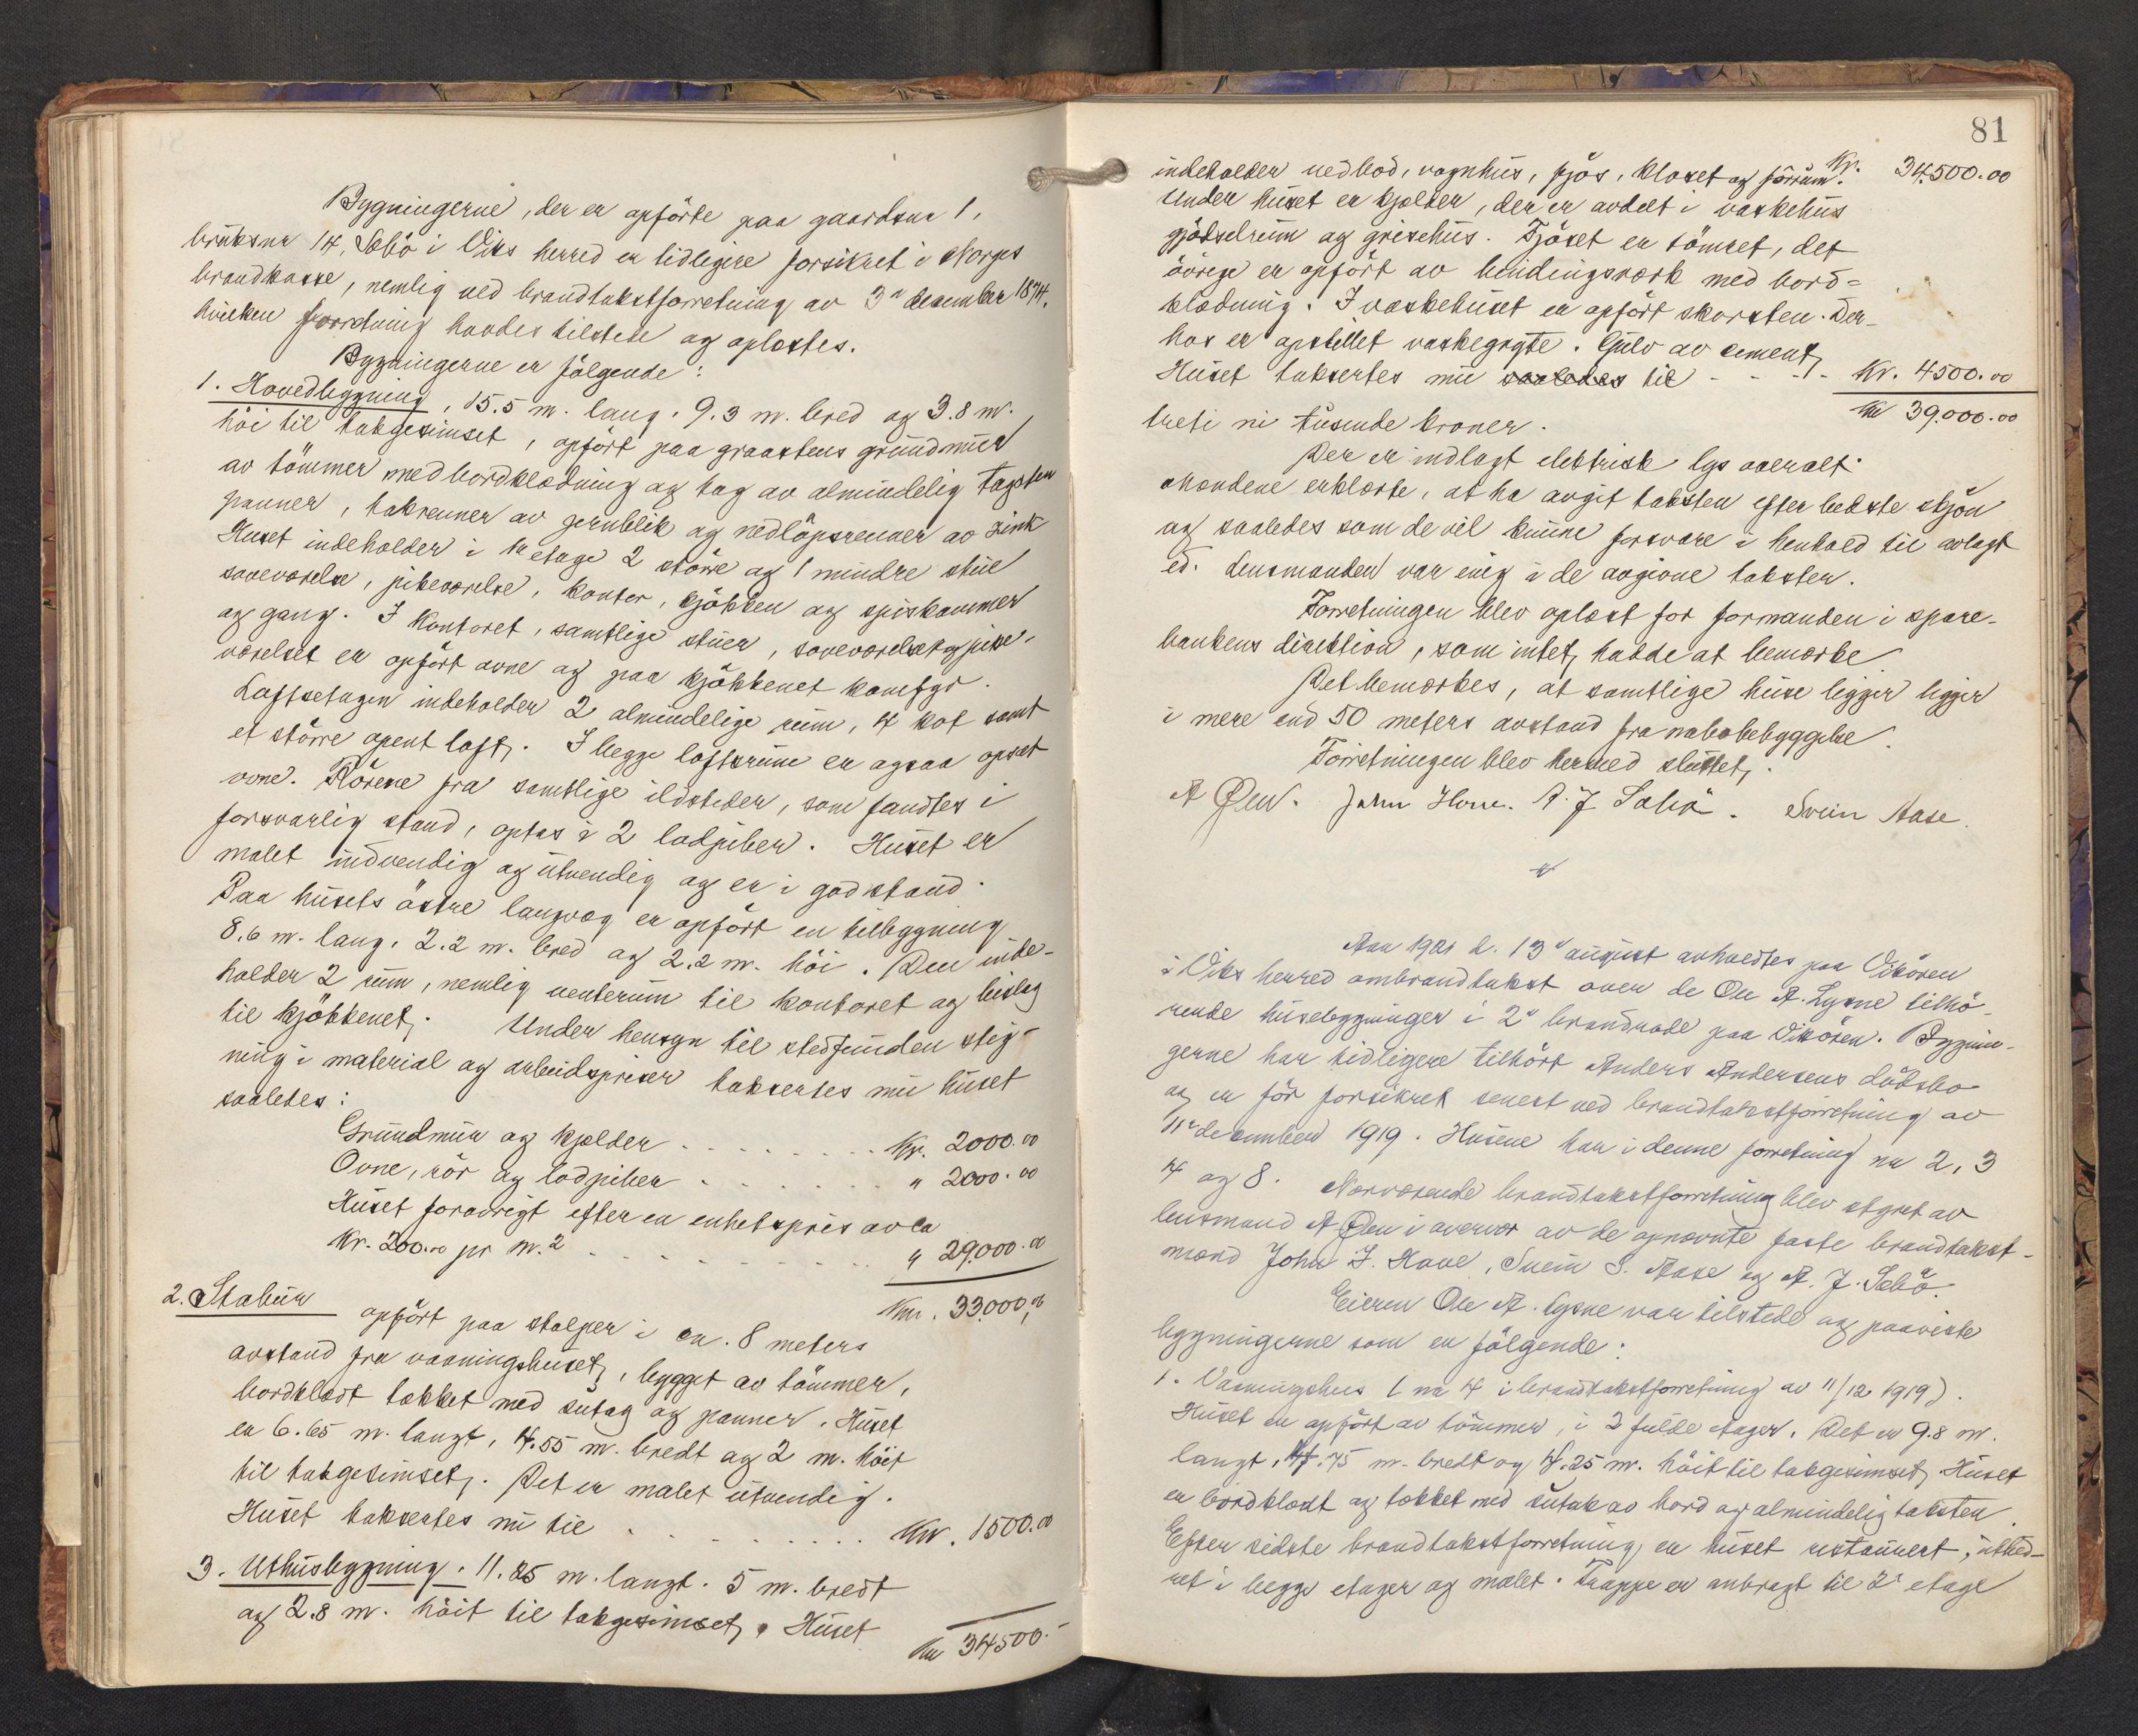 Bygningerne, der er opförte paa gaardsnr 1,
bruksnr 14, Sæbö i Viks herred er tidligere forsikret i Norges
brandkasse, nemlig ved brandtakstforretning av 3de desember 1874,
hvilken forretning havdes tilstede og oplæstes.
Bygningerne er fölgende:
1. Hovedbygning, 15.5 m. lang. 9.3 m. bred og 3.8 m.
höi til takgesimset, opfört paa graastens grundmur
av tömmer med bordklædning og tag av almindelig tagsten
panner, takrenner av jernblik og nedlöpsrenner av zink
Huset indeholder i 1ste etage 2 större og 1 mindre stue
soveværelse, pikeværelse, kontor, kjökken og spiskammer
og gang. I kontoret, samtlige stuer, soveværelset og pike-
værelset er opfört ovne og paa kjökkenet komfyr.
Loftsetagen indeholder 2 almindelige rum, 4 kot samt
et större åpent loft. I begge loftsrum er ogsaa opsat
ovne. Rörene fra samtlige ildsteder, som fandtes i
forsvarlig stand, optas i 2 lodpiber. Huset er
malet indvendig og utvendig og er i god stand.
Paa husets östre langvæg er opfört en tilbygning
8.6 m. lang. 2.2 m. bred og 2.2 m. höi. Den inde-
holder 2 rum, nemlig venterum til kontoret og bislag
til kjökkenet. Under hensyn til stedfunden stig-
ning i material og arbeidspriser taksertes nu huset
saaledes:
Grundmur og kjælder . . . . . . . Kr. 2000.00
Ovne, rör og lodpiber . . . . . . " 2000.00
Huset forövrigt efter en enhetspris av ca
Kr. 200.00 pr m.2 . . . . . . . . " 29.000.00
Kr. 33.000,00
2. Stabur opfört paa stolper i ca. 8 meters
avstand fra vaaningshuset, bygget av tömmer,
bordklædt tækket med sutag og panner. Huset
er 6.65 m. langt, 4.55 m. bredt og 2 m. höit
til takgesimset. Det er malet utvendig.
Huset taksertes nu til . . . . . . . . Kr. 1500.00
3. Uthusbygning. 11.85 m. langt. 5 m. bredt
og 2.8 m. höit til takgesimset. Huset
Kr 34500.-
81
indeholder vedbod, vognhus, fjös, kloset og förrum. Kr. 34.500.00
Under huset er kjælder, der er avdelt i vaskehus
gjödselrum og grisehus. Fjöset er tömret, det
övrige er opfört av bindingsværk med bord=
klædning. I vaskehuset er opfört skorsten. Der-
hos er opstillet vaskegryte. Gulv av cement,
Huset taksertes nu saaledes til - - - - Kr. 4500.00
Kr 39.000.00
treti ni tusende kroner.
Der er indlagt elektrisk lys overalt.
Mændene erklærte, at ha avgit taksten efter bedste skjön
og saaledes som de vil kunne forsvare i henhold til avlagt
ed. Lensmanden var enig i de avgivne takster.
Forretningen blev oplæst for formanden i spare-
bankens direktion, som intet hadde at bemerke
Det bemerkes, at samtlige huse ligger ligger
i mere end 50 meters avstand fra nabobebyggelse.
Forretningen blev hermed sluttet,
A Øen. John Hove. A. J. Sæbö. Svein Aase.
Aar 1921 d. 13de august avholdtes paa Vikören
i Viks herred ombrandtakst over de Ole A. Lysne tilhö-
rende husebygninger i 2de brandrode paa Vikören. Bygnin-
gerne har tidligere tilhört Anders Andersens dödsbo
og er för forsikret senest ved brandtakstforretning av
11te desember 1919. Husene har i denne forretning nr 2, 3
4 og 8. Nærværende brandtakstforretning blev styret av
lensmand A Øen i overvær av de opnævnte faste brandtakst-
mænd John J. Hove, Svein S. Aase og A. J. Sæbö.
Eieren Ole A. Lysne var tilstede og paaviste
bygningerne som er fölgende:
1. Vaaningshus (nr 4 i brandtakstforretning av 11/12 1919).
Huset er opfört av tömmer, i 2 fulde etager. Det er 9.8 m.
langt, 4.75 m. bredt og 4.25 m. höit til takgesimset, Huset
er bordklædt og tækket med sutak av bord og almindelig taksten.
Efter sidste brandtakstforretning er huset restaurert, utbed-
ret i begge etager og malet. Trappe er anbragt til 2de etage